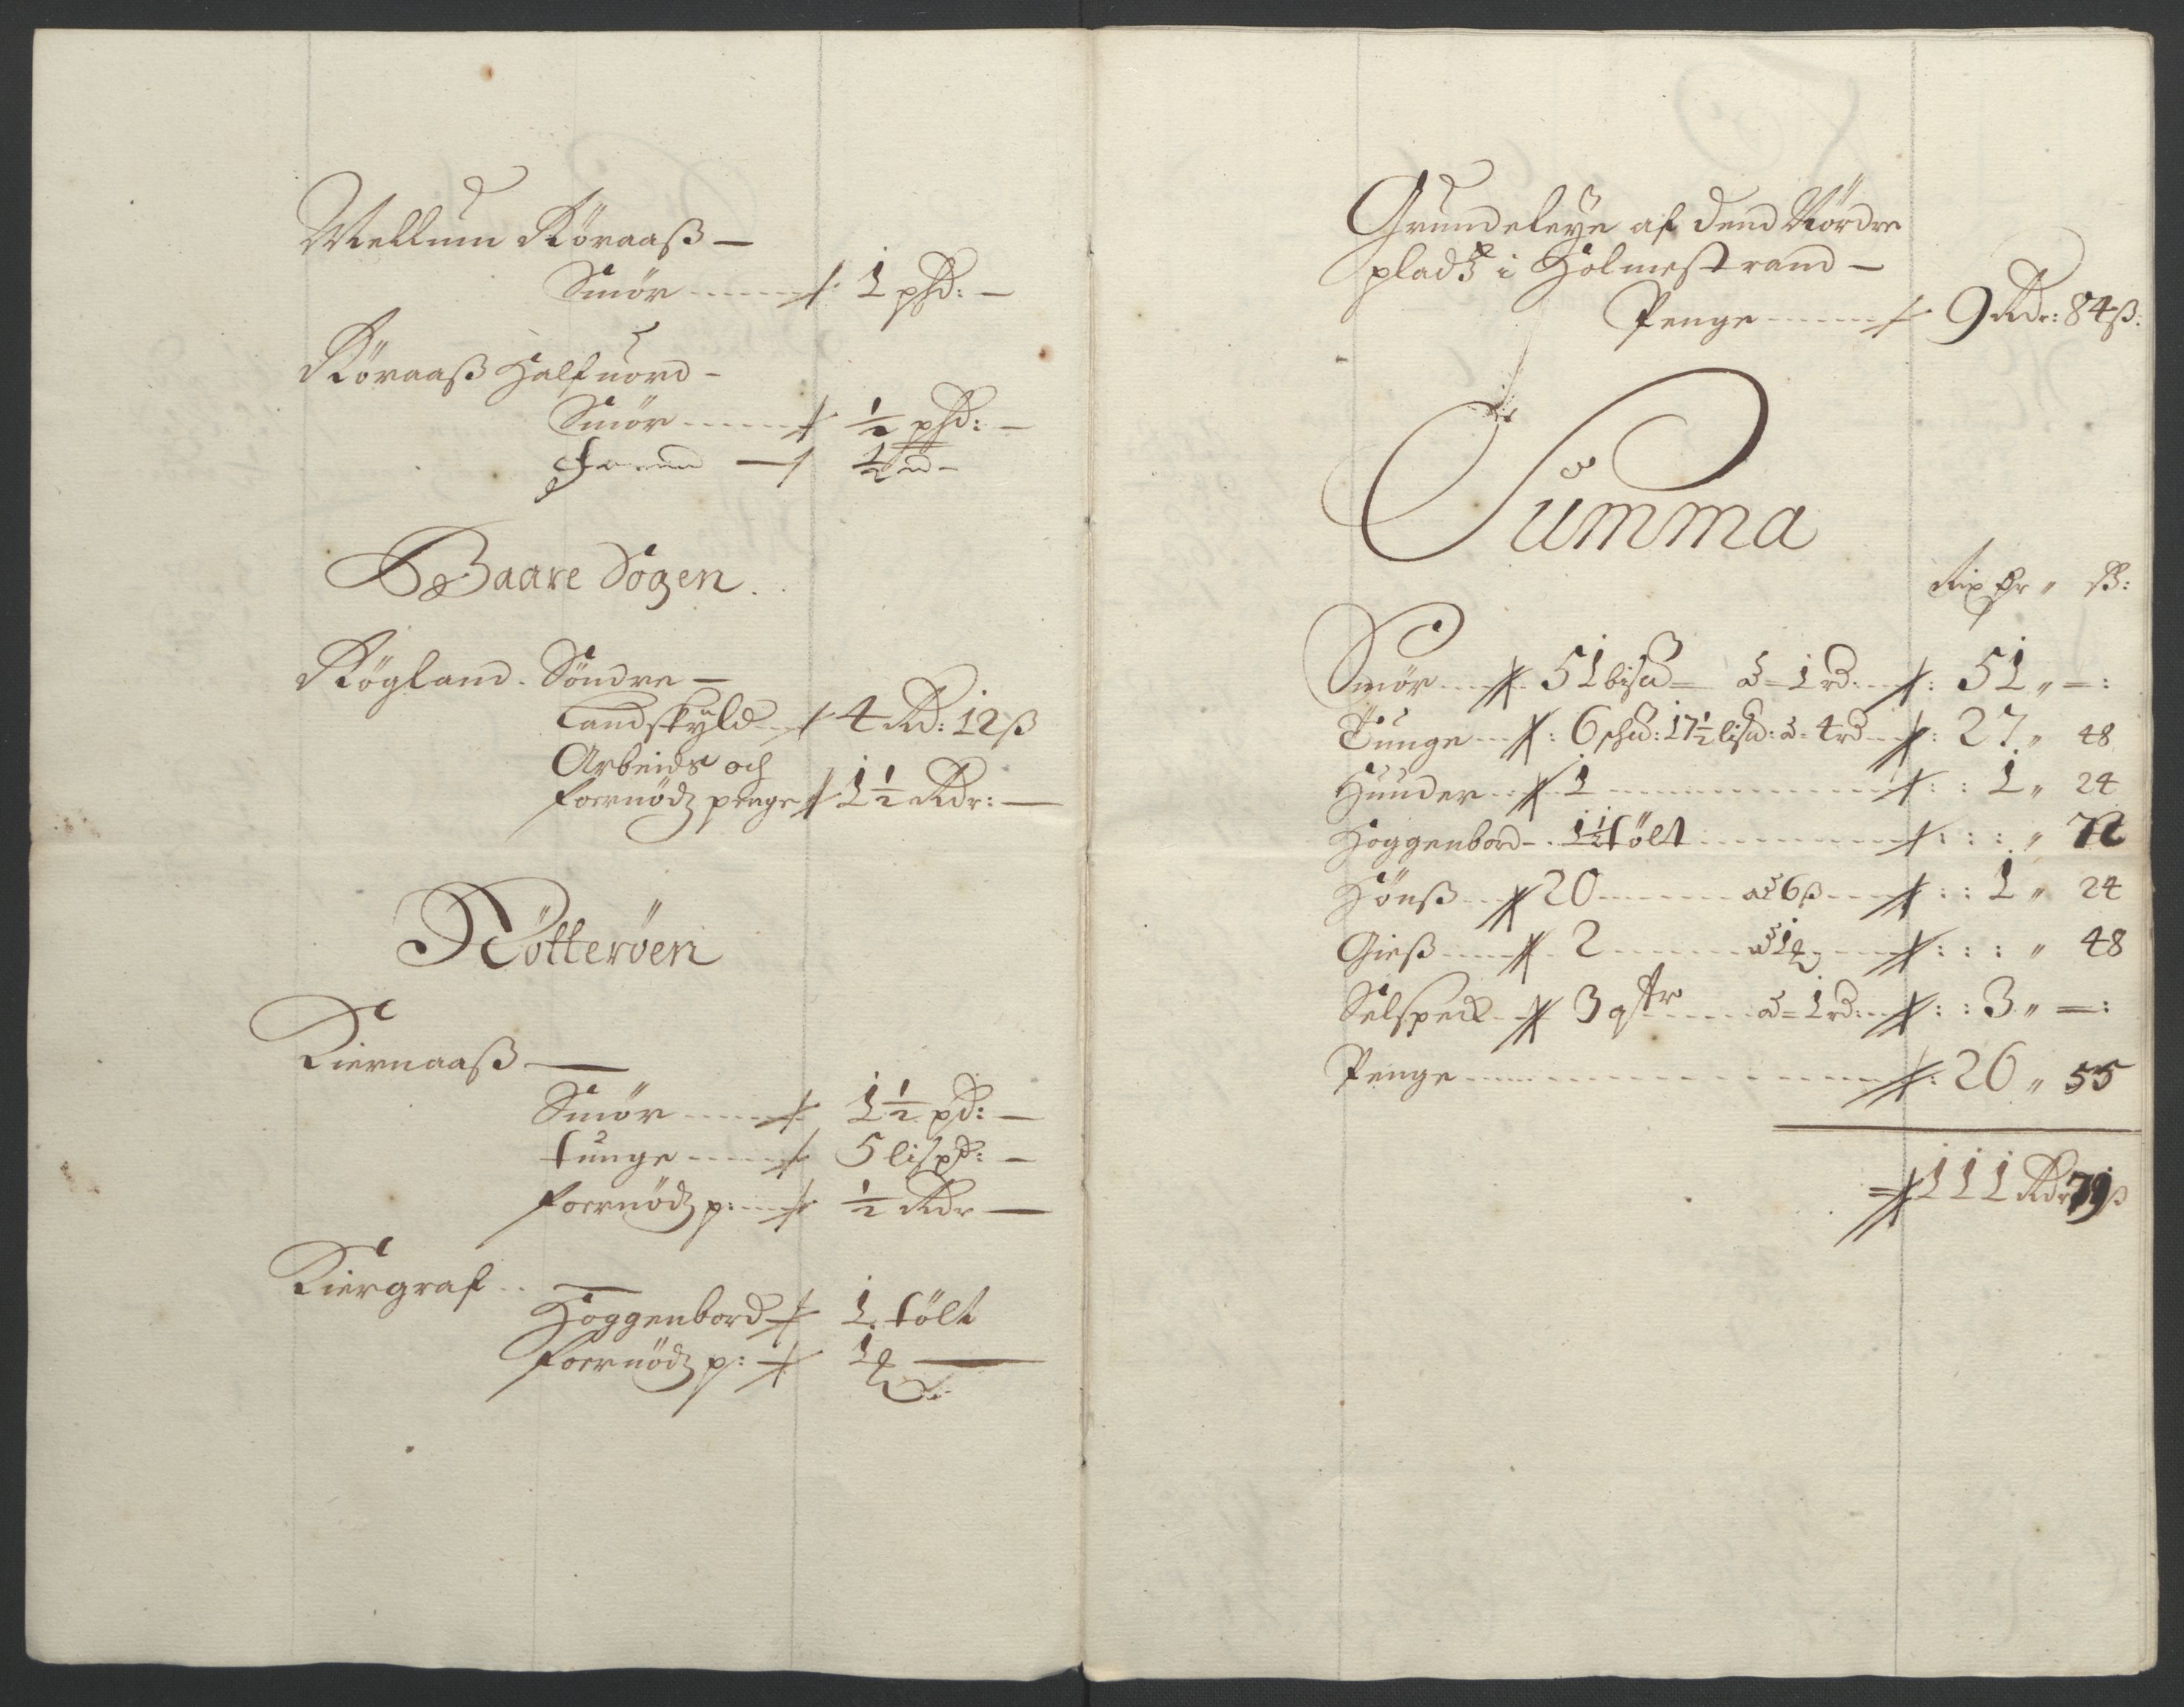 Mellum Röraaß —
Smör ------ 1 pd: —
Röraaß Halfuord -
Smör ------ ½ pd: —
½ d -
Baare Sogen.
Rögland. Söndre —
Landskyld -- 4 Rd: 12 ß
Arbeids och
foernödz penge 1½ Rdr: —
Nötteröen
Kiernaaß —
Smör ------ 1½ pd: —
tunge ------ 5 lispd: —
foernödz p: ---- ½ Rdr —
Kiergraf ..
Hoggenbord - 1. tölt
foernödz p: - 1
Grundeleye af dend Nördre
pladz i Holmestrand —
Penge ------ 9 Rdr: 84 ß:
Summa
Rix dr „ ß:
Smör ---- 51 bisd — a - 1 rd: --- : 51 „ — :
Tunge ---- : 6 : 17½ lisd: a - 4 rd --- : 27 „ 48
Hunder --- 1 ------------ : : 1 „ 24
Hoggenbord - . 1½ tölt ---------- : : : „ 72
Hönß --- 20 ------- a 6 ß ---- : : 1 „ 24
Gieß ----- 2 ------- a 1 ---- : : : „ 48
Selspeck --- 3 qtr ----- a - 1 rd: --- : : 3 „ — :
Penge ---------------- : 26 „ 55
111 Rdr 79 ß